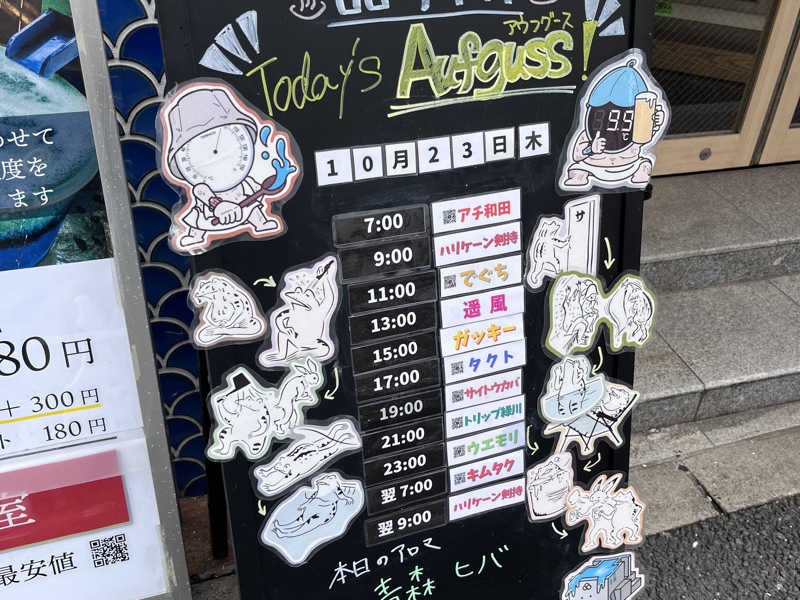 Today's
アウフグース
Aufguss!
10月23日木
7:00 アチ和田
9:00 ハリケーン剣持
11:00 でぐち
13:00 遥風
15:00 ガッキー
17:00 タクト
19:00 サイトウカバ
21:00 トリップ緑川
23:00 ウエモリ
翌 7:00 キムタク
翌 9:00 ハリケーン剣持
本日のアロマ
青森 ヒバ
サ
9.9
℃
わせて
度を
ます
80円
+300円
ト 180円
室
最安値